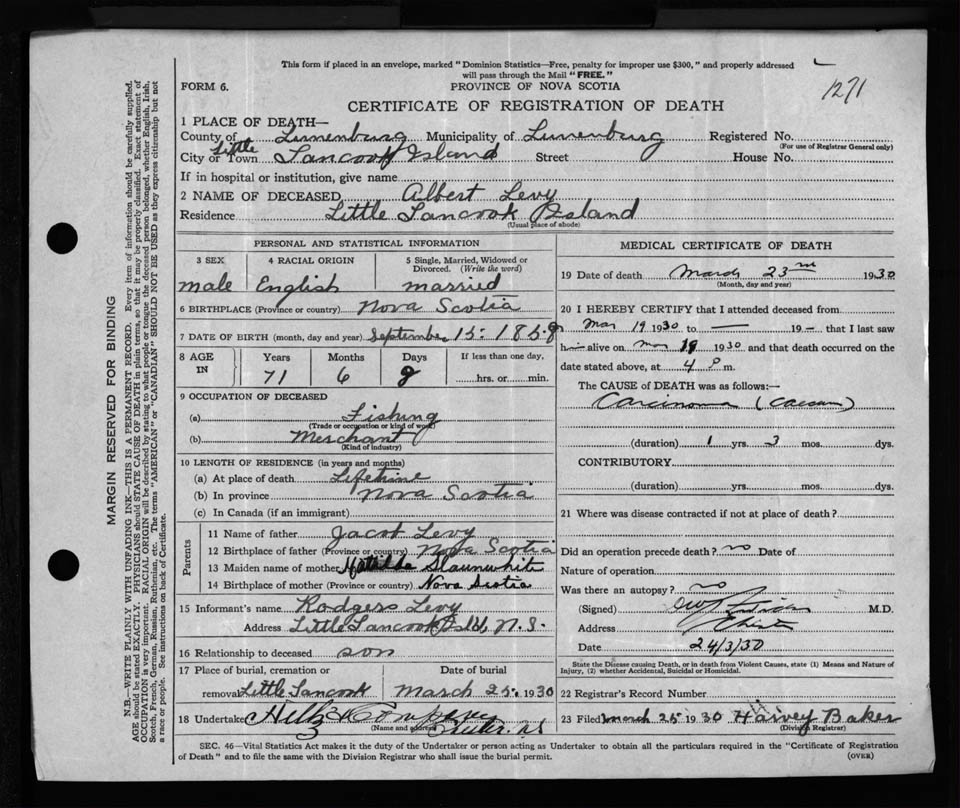 This form if placed in an envelope, marked "Dominion Statistics—Free, penalty for improper use $300," and properly addressed
will pass through the Mail "FREE."
1271
FORM 6.
PROVINCE OF NOVA SCOTIA
CERTIFICATE OF REGISTRATION OF DEATH
1 PLACE OF DEATH—
County of Lunenburg Municipality of Lunenburg Registered No.
(For use of Registrar General only)
City or Town Little Tancook Island Street House No.
If in hospital or institution, give name
2 NAME OF DECEASED Albert Levy
Residence Little Tancook Island
(Usual place of abode)
PERSONAL AND STATISTICAL INFORMATION
3 SEX 4 RACIAL ORIGIN 5 Single, Married, Widowed or
Divorced. (Write the word)
male English married
6 BIRTHPLACE (Province or country) Nova Scotia
7 DATE OF BIRTH (month, day and year) September 15. 1858
8 AGE IN Years Months Days If less than one day,
71 6 8 hrs. or min.
9 OCCUPATION OF DECEASED
(a) Fishing
(Trade or occupation or kind of work)
(b) Merchant
(Kind of industry)
10 LENGTH OF RESIDENCE (in years and months)
(a) At place of death Lifetime
(b) In province Nova Scotia
(c) In Canada (if an immigrant)
Parents
11 Name of father Jacob Levy
12 Birthplace of father (Province or country) Nova Scotia
13 Maiden name of mother Matilda Slaunwhite
14 Birthplace of mother (Province or country) Nova Scotia
15 Informant's name Rodgers Levy
Address Little Tancook Isld, N.S.
16 Relationship to deceased son
17 Place of burial, cremation or Date of burial
removal Little Tancook March 25. 1930
18 Undertaker
(Name and address)
MEDICAL CERTIFICATE OF DEATH
19 Date of death March 23rd 1930
(Month, day and year)
20 I HEREBY CERTIFY that I attended deceased from
Mar 19 1930 to — 19 — that I last saw
him alive on Mar 19 1930 and that death occurred on the
date stated above, at 4 P m.
The CAUSE of DEATH was as follows:—
Carcinoma (Caecum)
(duration) 1 yrs. 3 mos. dys.
CONTRIBUTORY
(duration) yrs. mos. dys.
21 Where was disease contracted if not at place of death?
Did an operation precede death? no Date of
Nature of operation
Was there an autopsy? no
(Signed) M.D.
Address Chester
Date 24/3/30
State the Disease causing Death, or in death from Violent Causes, state (1) Means and Nature of
Injury, (2) whether Accidental, Suicidal or Homicidal.
22 Registrar's Record Number
23 Filed March 25 1930 Harvey Baker
(Division Registrar)
SEC. 46—Vital Statistics Act makes it the duty of the Undertaker or person acting as Undertaker to obtain all the particulars required in the "Certificate of Registration
of Death" and to file the same with the Division Registrar who shall issue the burial permit.
(OVER)
MARGIN RESERVED FOR BINDING
N.B.—WRITE PLAINLY WITH UNFADING INK—THIS IS A PERMANENT RECORD. Every item of information should be carefully supplied.
AGE should be stated EXACTLY. PHYSICIANS should STATE CAUSE OF DEATH in plain terms, so that it may be properly classified. Exact statement of
OCCUPATION is very important. RACIAL ORIGIN will be described by stating to what people or tongue the deceased person belonged, whether English, Irish,
Scotch, French, German, Russian, Ruthenian, etc. The terms "AMERICAN" or "CANADIAN" SHOULD NOT BE USED as they express citizenship but not
a race or people. See instructions on back of Certificate.